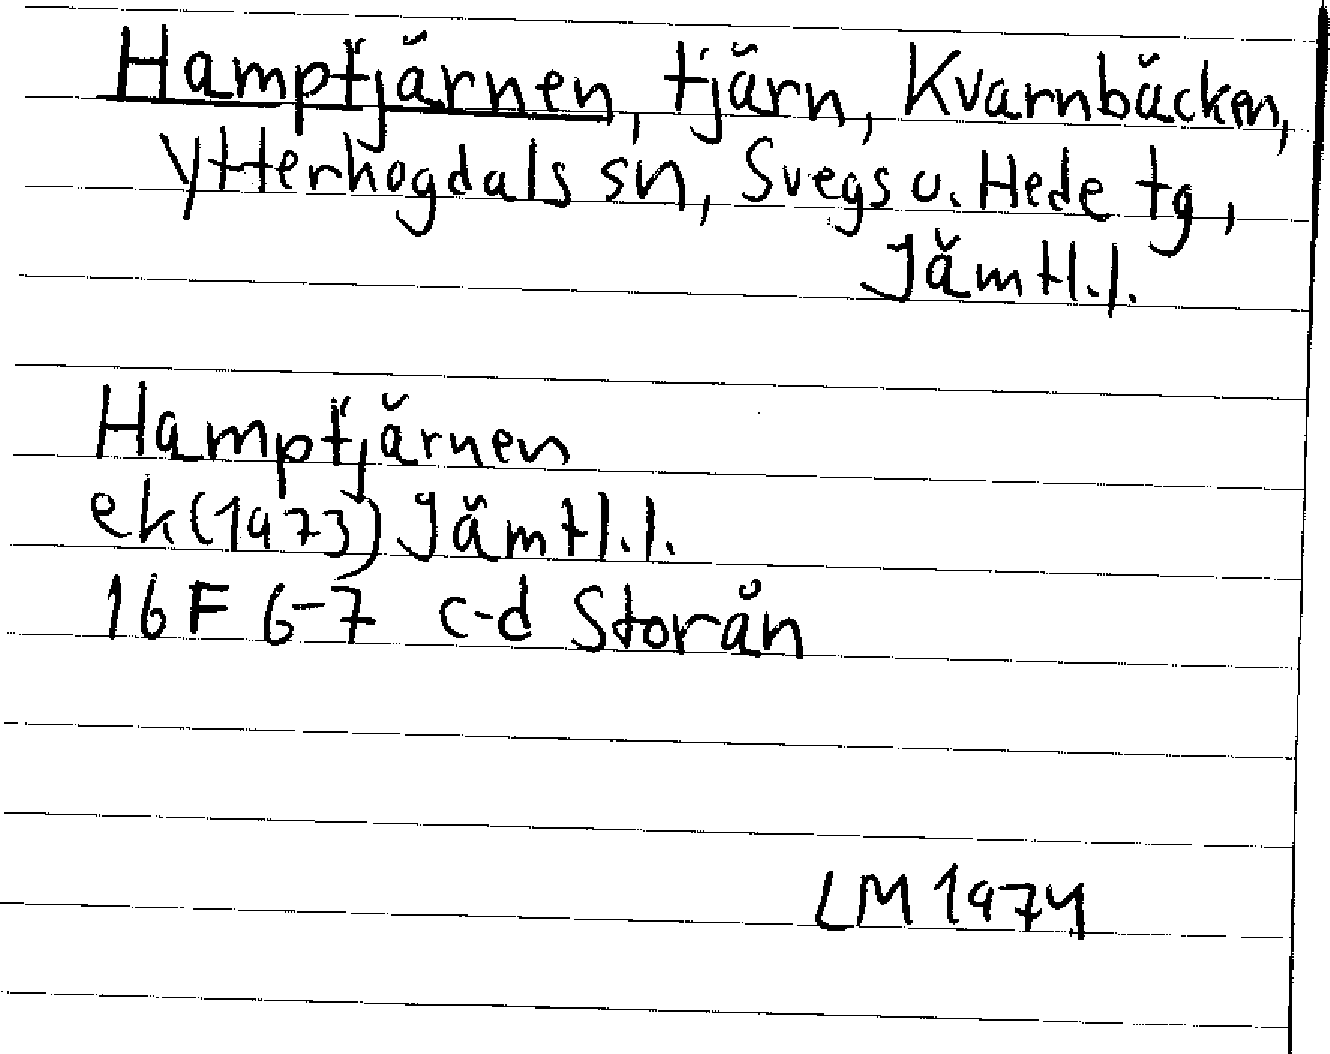 Hamptjärnen, tjärn, Kvarnbäcken,
Ytterhogdals sn, Svegs o. Hede tg,
Jämtl.l.
Hamptjärnen
ek(1973) Jämtl.l.
16 F 6-7 c-d Storån
LM 1974